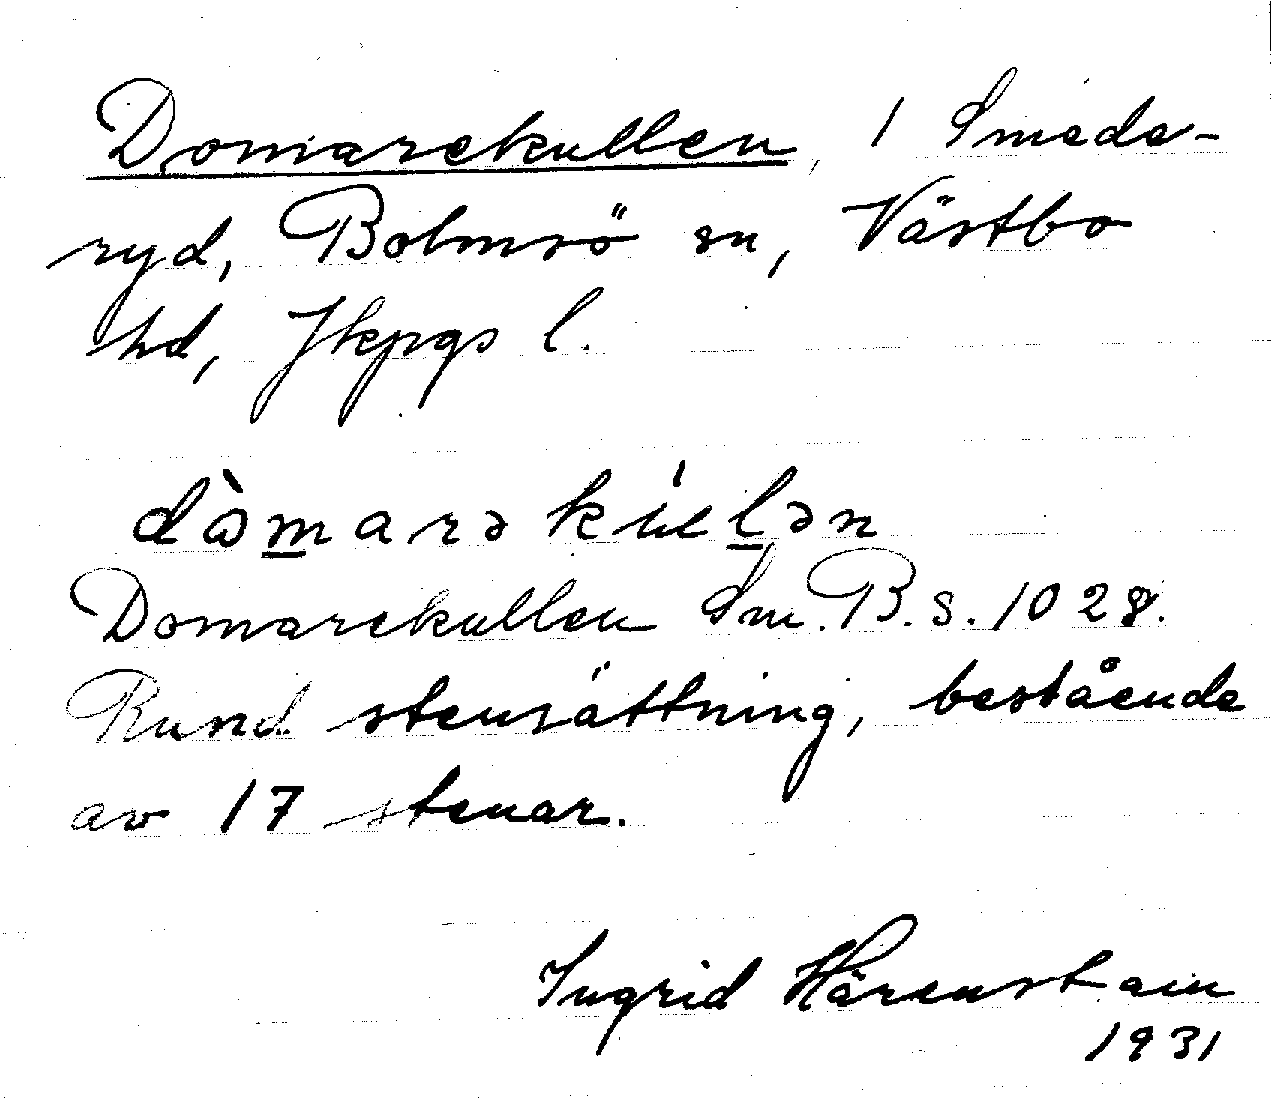 Domarekullen, i Smeda-
ryd, Bolmsö sn, Västbo
hd, Jkpgs l.
dòmarə kúlən
Domarekullen Sm. B. s. 1028.
Rund stensättning, bestående
av 17 stenar.
Ingrid Härenstam
1931